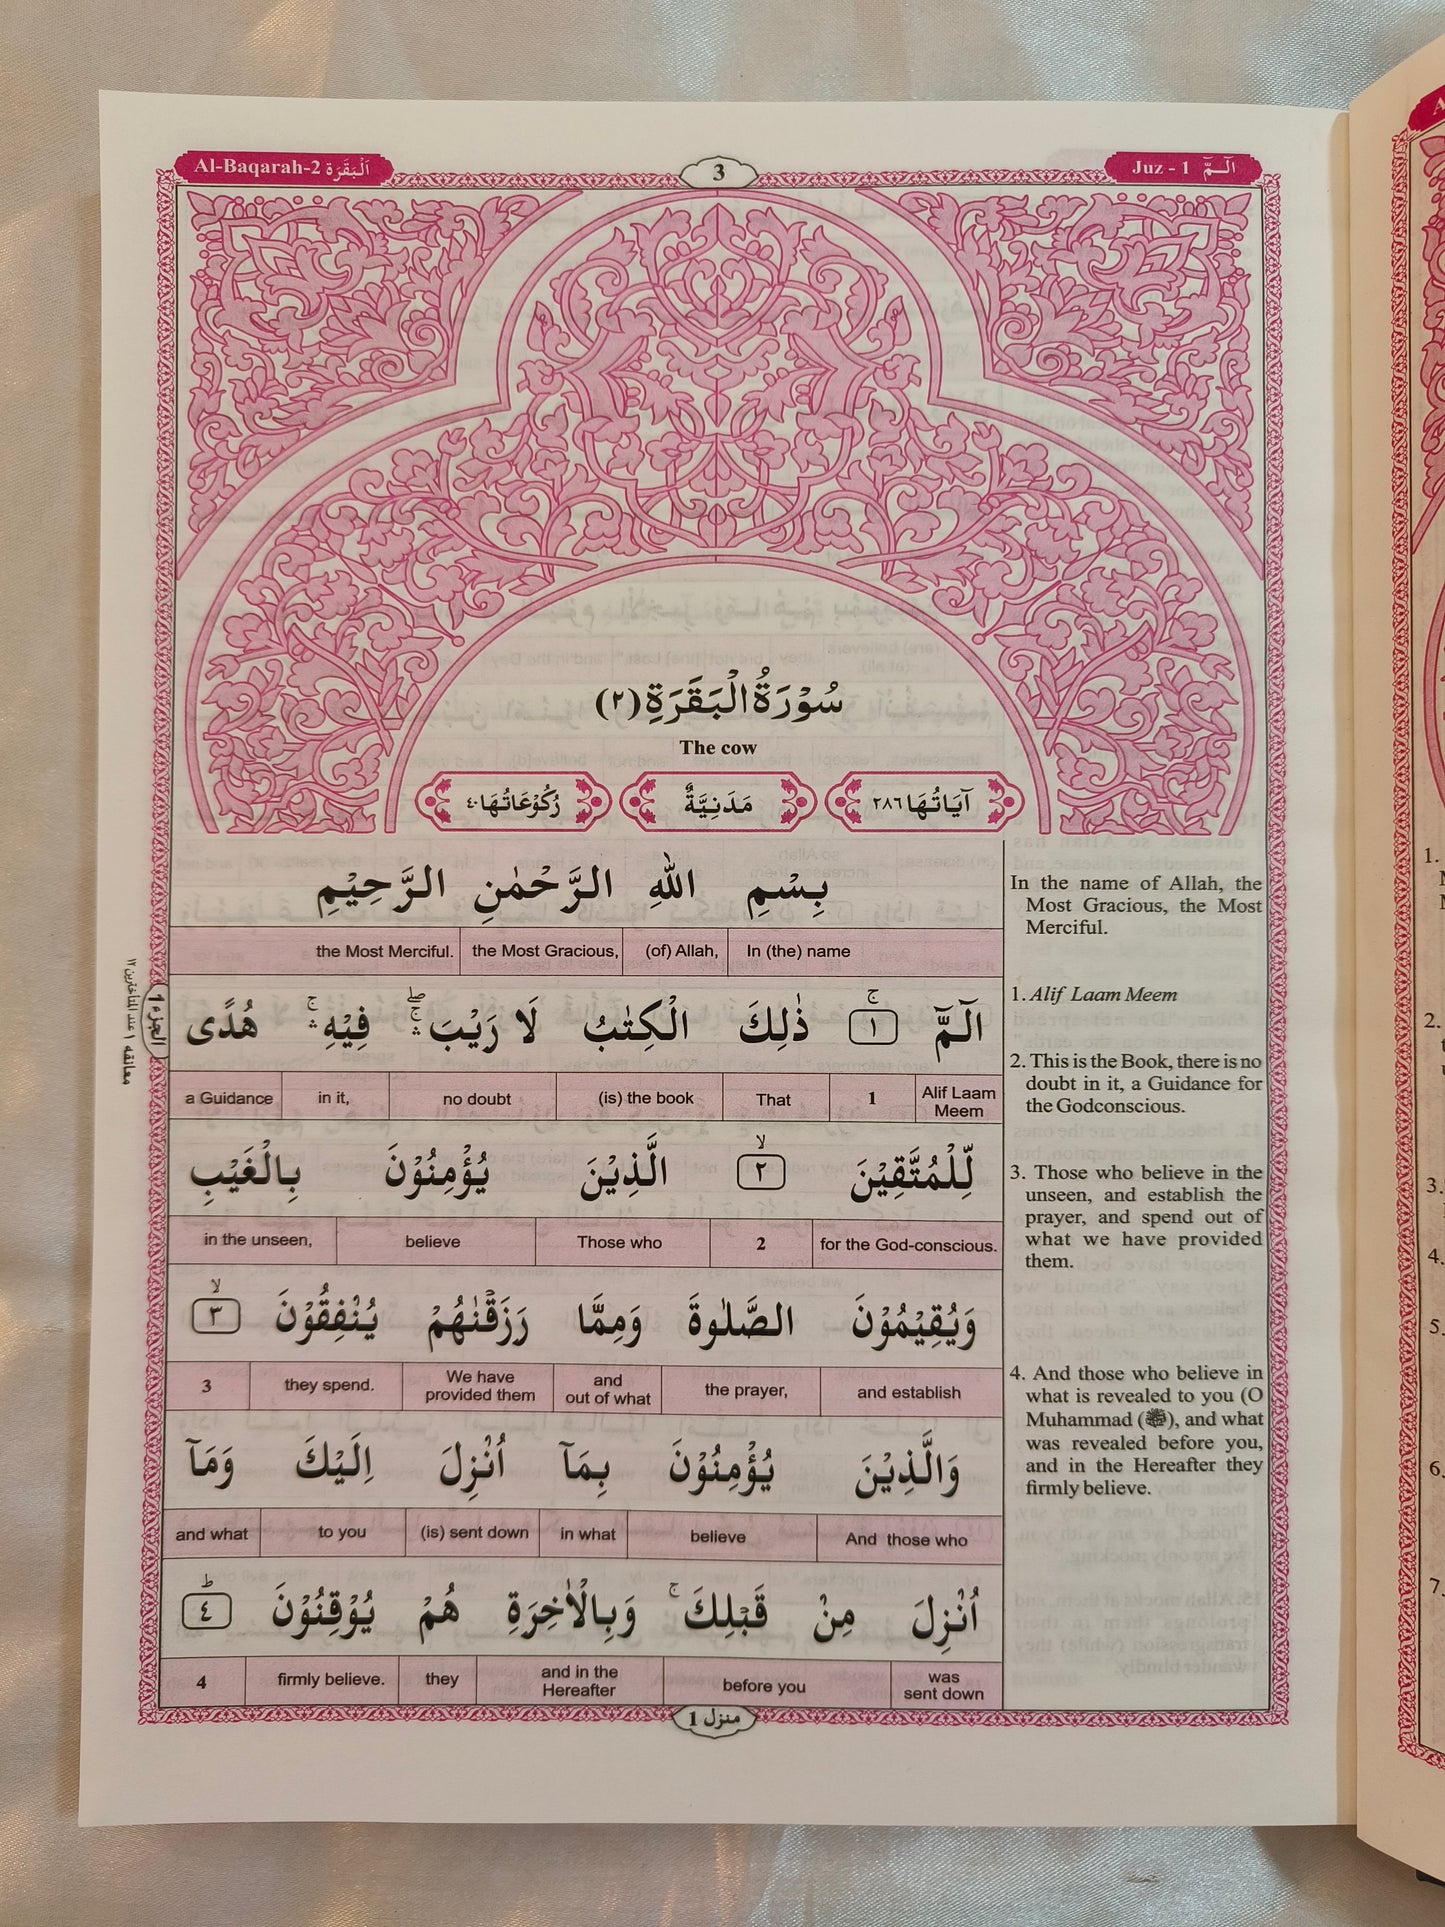 Al-Baqarah-2 اَلْبَقَرَة
3
Juz - 1 الٓـمّٓ
سُوْرَةُ الْبَقَرَةِ (٢)
The cow
اٰيَاتُهَا ٢٨٦ مَدَنِيَّةٌ رُكُوْعَاتُهَا ٤٠
بِسْمِ اللّٰهِ الرَّحْمٰنِ الرَّحِيْمِ
the Most Merciful. the Most Gracious, (of) Allah, In (the) name
الٓمّٓ ۚ ١ ذٰلِكَ الْكِتٰبُ لَا رَيْبَ ۛۖ فِيْهِ ۛۚ هُدًى
a Guidance in it, no doubt (is) the book That 1 Alif Laam
Meem
لِّلْمُتَّقِيْنَ ۙ ٢ الَّذِيْنَ يُؤْمِنُوْنَ بِالْغَيْبِ
in the unseen, believe Those who 2 for the God-conscious.
وَيُقِيْمُوْنَ الصَّلٰوةَ وَمِمَّا رَزَقْنٰهُمْ يُنْفِقُوْنَ ۙ ٣
3 they spend. We have and the prayer, and establish
provided them out of what
وَالَّذِيْنَ يُؤْمِنُوْنَ بِمَآ اُنْزِلَ اِلَيْكَ وَمَآ
and what to you (is) sent down in what believe And those who
اُنْزِلَ مِنْ قَبْلِكَ ۚ وَبِالْاٰخِرَةِ هُمْ يُوْقِنُوْنَ ؕ ٤
4 firmly believe. they and in the before you was
Hereafter sent down
In the name of Allah, the
Most Gracious, the Most
Merciful.
1. Alif Laam Meem
2. This is the Book, there is no
doubt in it, a Guidance for
the Godconscious.
3. Those who believe in the
unseen, and establish the
prayer, and spend out of
what we have provided
them.
4. And those who believe in
what is revealed to you (O
Muhammad (ﷺ), and what
was revealed before you,
and in the Hereafter they
firmly believe.
الجزء 1
معانقه ١ عند المتأخرين ١٢
منزل 1
1.
2.
3.
4.
5.
6.
7.